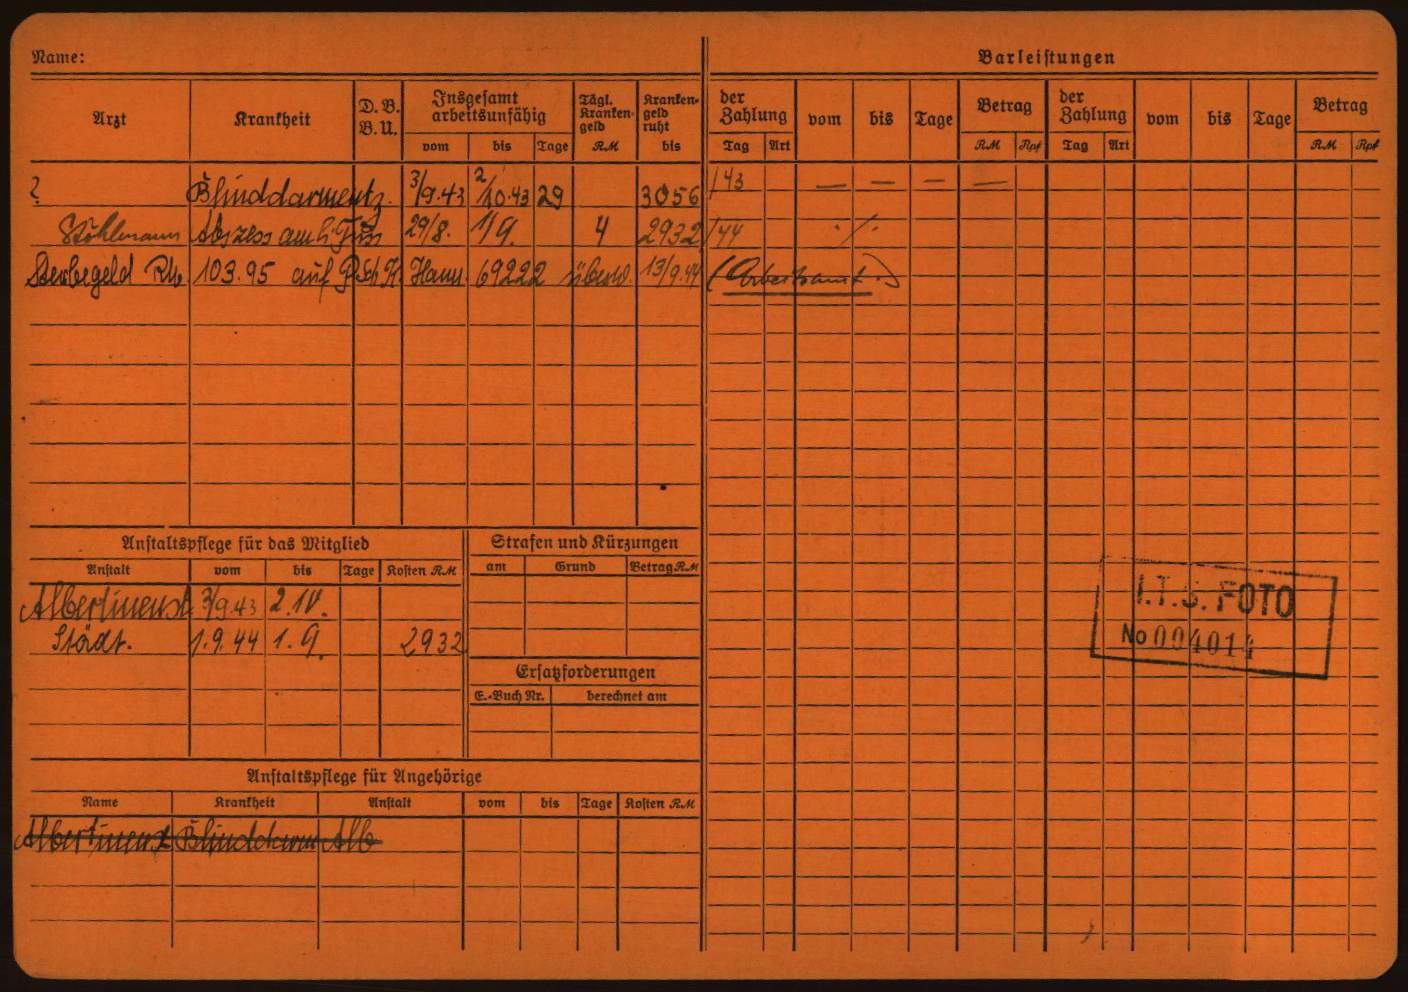 Name:
Arzt Krankheit D.B. B.U. Insgesamt arbeitsunfähig Tägl. Kranken-geld Kranken-geld ruht
vom bis Tage RM bis
? Blinddarmentz. 3/9.43 2/10.43 29 3056
Stöhlmann Abszess am l. Fuss 29/8. 1/9. 4 2932
Sterbegeld Rm. 103.95 auf P.Sch.K. Hann. 69222 überw. 13/9.44
Anstaltspflege für das Mitglied
Anstalt vom bis Tage Kosten RM
Albertinenst. 3/9.43 2.10.
Städt. 1.9.44 1.9. 2932
Strafen und Kürzungen
am Grund Betrag RM
Ersatzforderungen
E.-Buch Nr. berechnet am
Anstaltspflege für Angehörige
Name Krankheit Anstalt vom bis Tage Kosten RM
Albertinenst Blinddarm Alb
Barleistungen
der Zahlung vom bis Tage Betrag der Zahlung vom bis Tage Betrag
Tag Art RM Rpf Tag Art RM Rpf
/43 — — — —
/44 ./.
(Arbeitsamt.)
I.T.S. FOTO
No 004014